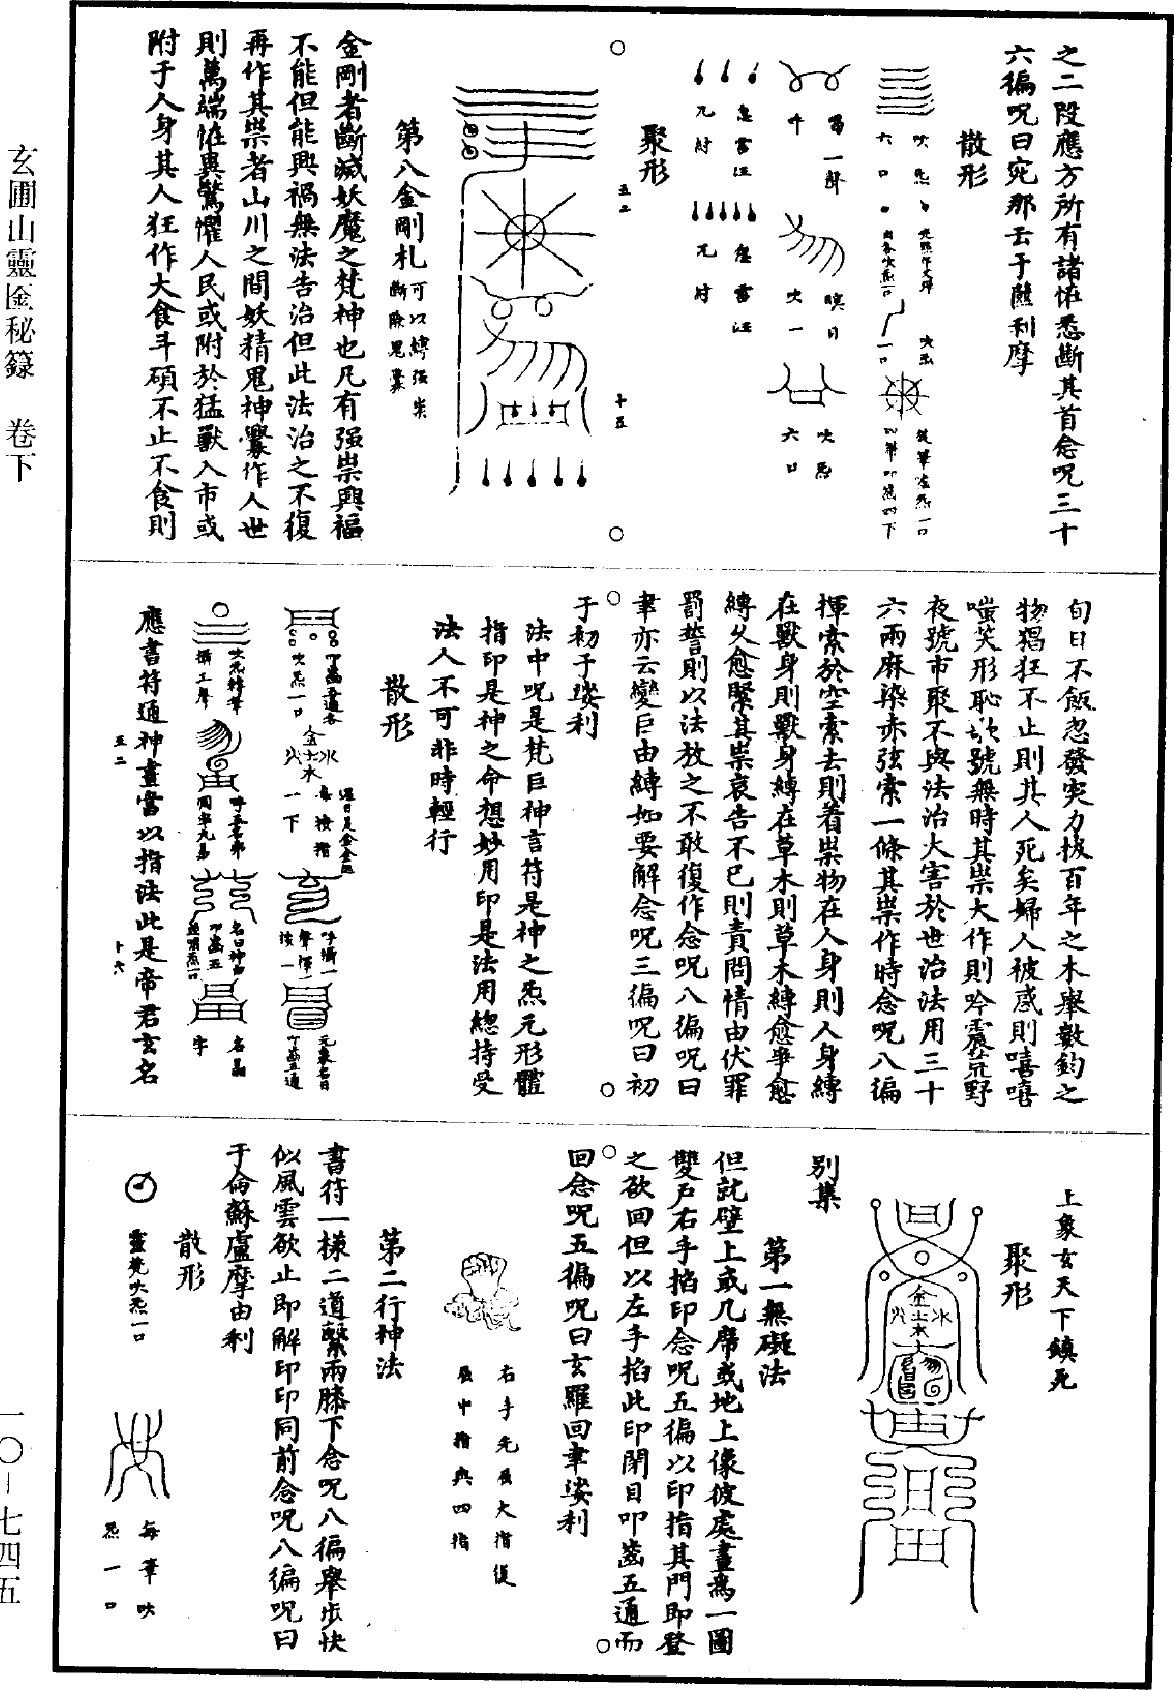 玄圃山靈𠫭秘籙　卷下
一〇－七四五
之二段應方所有諸怪悉斷其首念呪三十
六徧呪曰宛那去于䕷利摩
散形
六口
吹炁
吹出
一口
留一聲
千
瞑目
吹一
吹炁
六口
聚形
五二
十五
第八金剛札可以縛張祟
斷除鬼囊
金剛者斷滅妖魔之梵神也凡有强祟興福
不能但能興禍無法告治但此法治之不復
再作其祟者山川之間妖精鬼神釁作人世
則萬端怪異驚懼人民或附於猛獸入市或
附于人身其人狂作大食斗碩不止不食則
旬日不飯忽發突力拔百年之木舉數鈞之
物猖狂不止則其人死矣婦人被惑則嘻嘻
嗤笑形恥歌號無時其祟大作則吟震荒野
夜號市聚不與法治大害於世治法用三十
六兩麻染赤弦索一條其祟作時念呪八徧
揮索於空索去則着祟物在人身則人身縛
在獸身則獸身縛在草木則草木縛愈爭愈
縛久愈緊其祟哀告不已則責問情由伏罪
罰誓則以法放之不敢復作念呪八徧呪曰
聿亦云變巨由縛如要解念呪三徧呪曰初
于初于娑利
法中呪是梵巨神言符是神之炁元形體
指印是神之命想妙用印是法用總持受
法人不可非時輕行
散形
丁齒通
吹炁一口
金水火木土
一下
呼攝一
聲揮一
按一
名昌
字
應書符通神畫當以指法此是帝君玄名
五二
十六
上象玄天下鎮死
聚形
別集
第一無礙法
但就壁上或几席或地上像彼處畫爲一圖
雙戸右手掐印念呪五徧以印指其門即登
之欲回但以左手掐此印閉目叩齒五通而
回念呪五徧呪曰玄羅回聿娑利
右手先屈大指復
屈中指與四指
第二行神法
書符一樣二道繫兩膝下念呪八徧舉步快
似風雲欲止即解印印同前念呪八徧呪曰
于侖蘇盧摩由利
散形
靈梵吹炁一口
每筆吹
炁一口